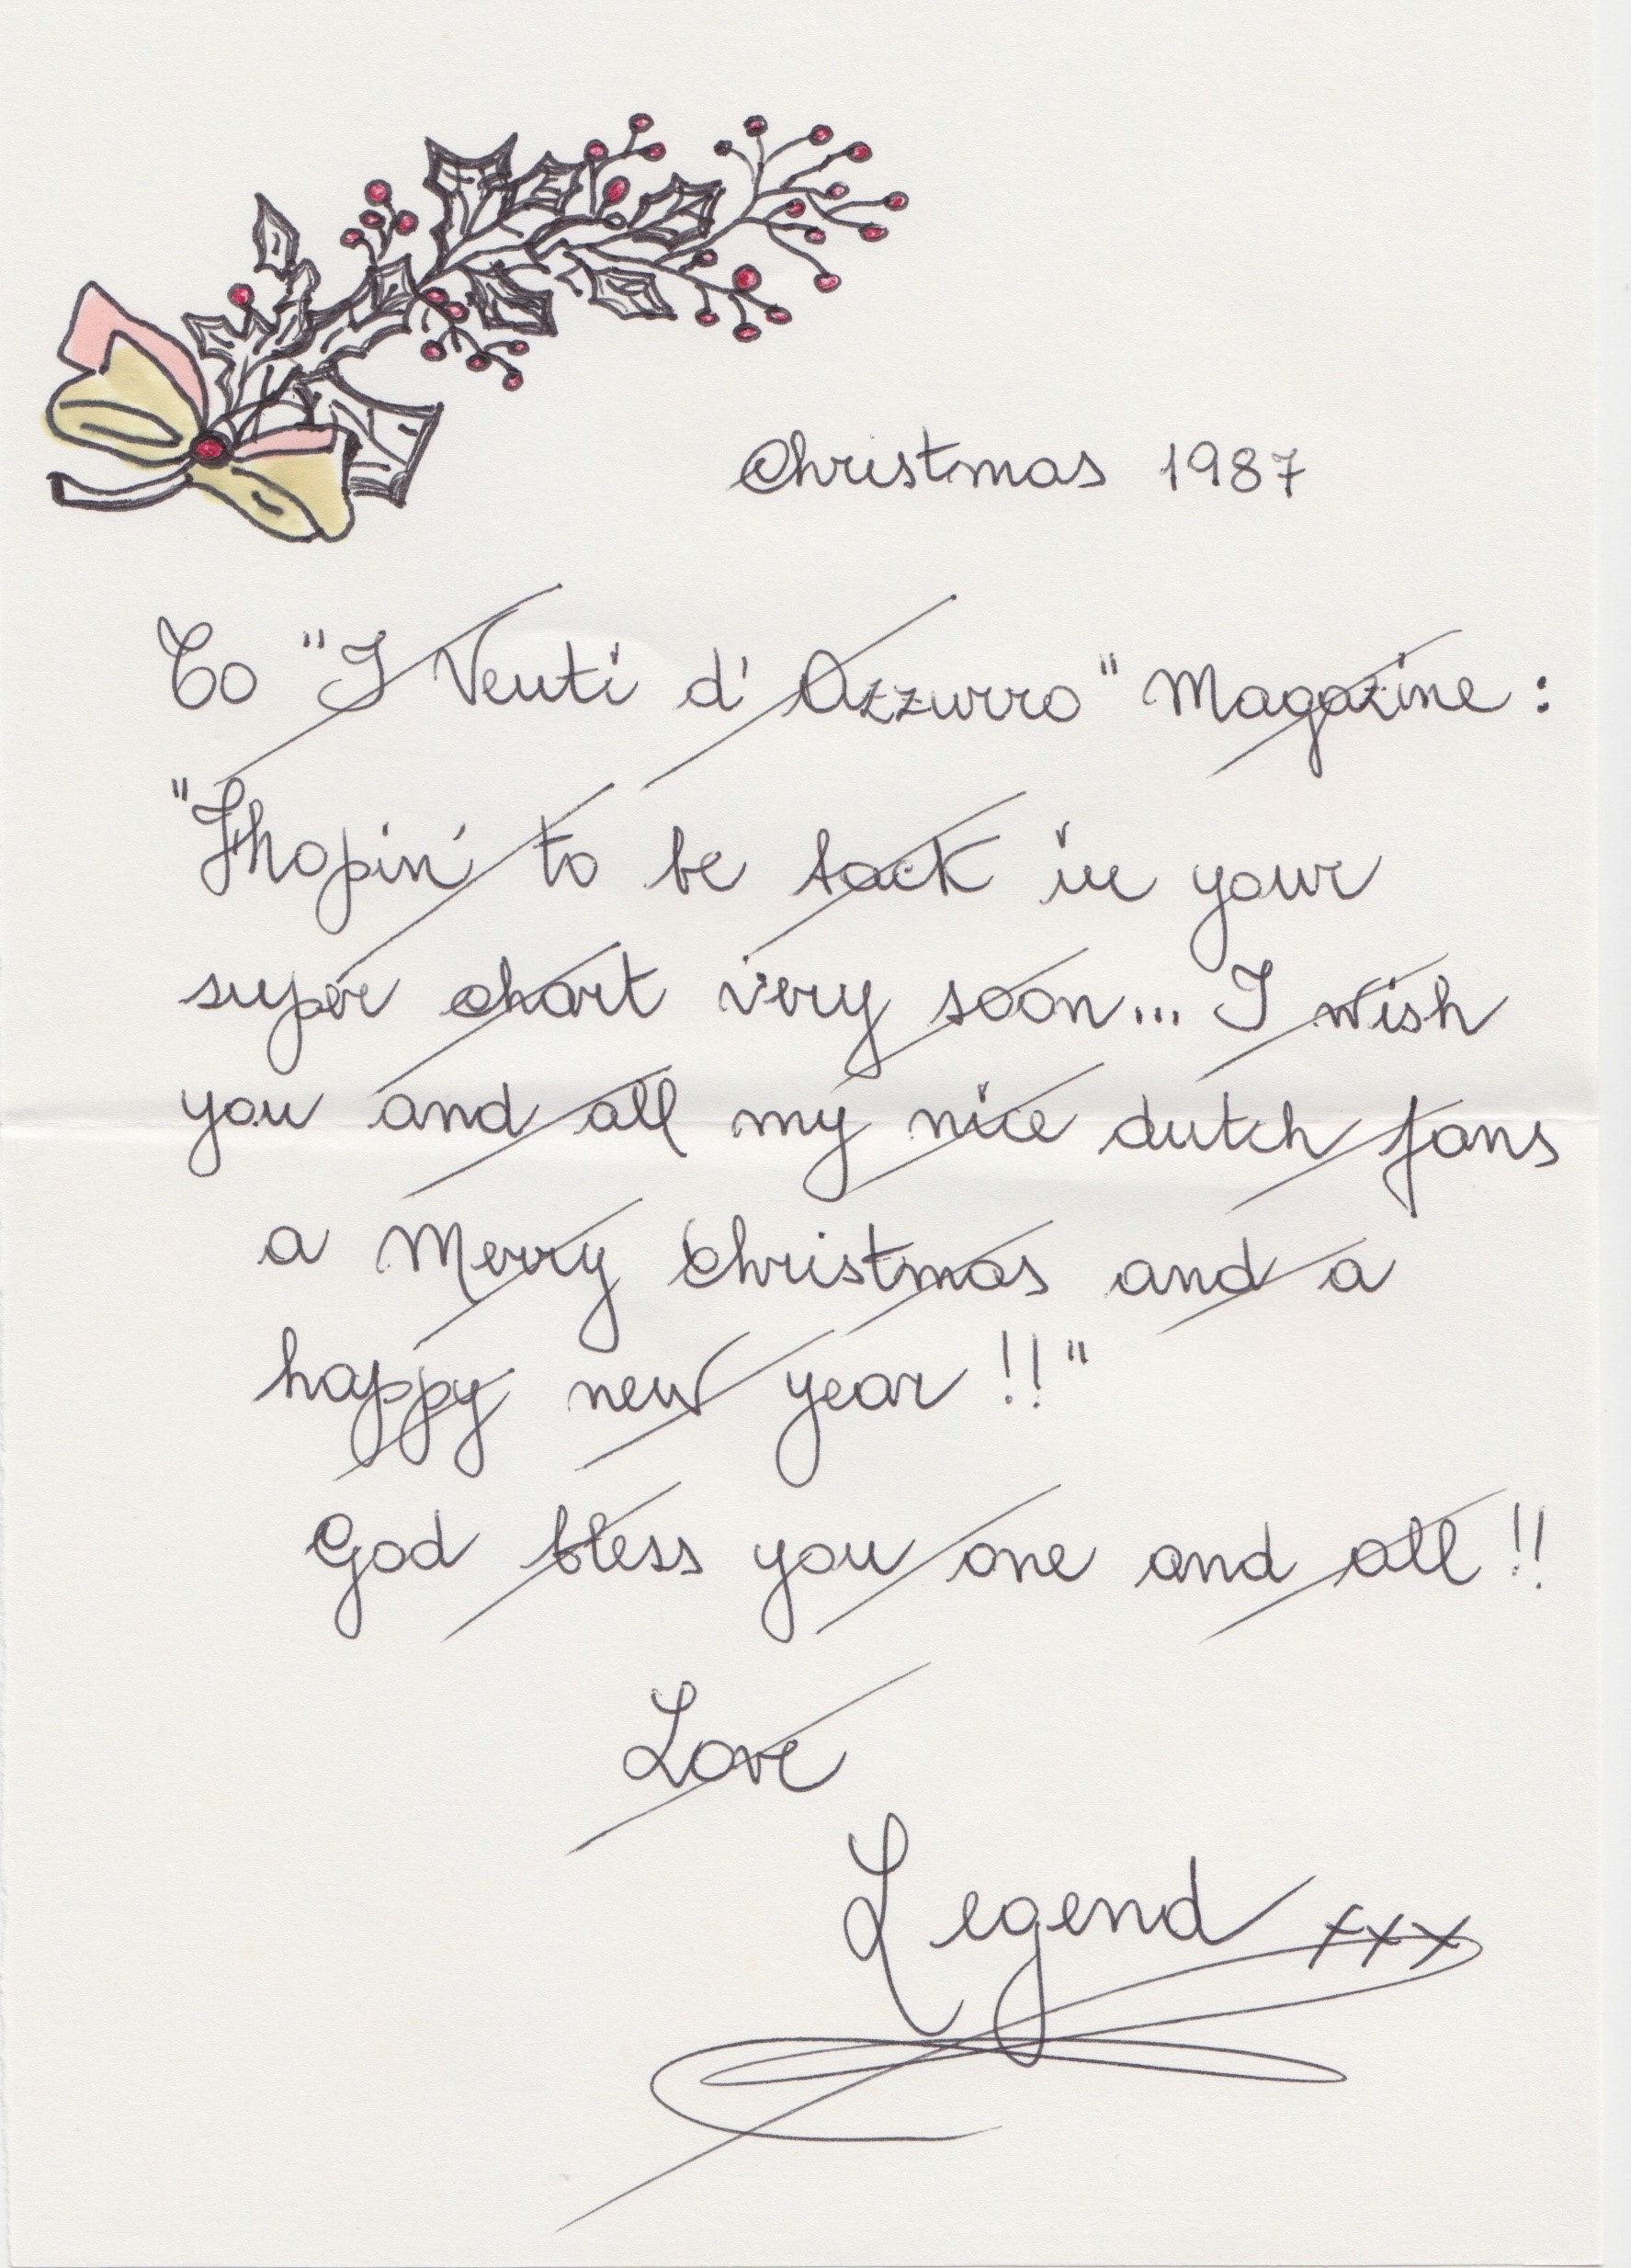 Christmas 1987
To "I Venti d' Azzurro" Magazine:
"Hopin' to be back in your
super chart very soon... I wish
you and all my nice dutch fans
a Merry Christmas and a
happy new year!!"
God bless you one and all!!
Love
Legend xxx